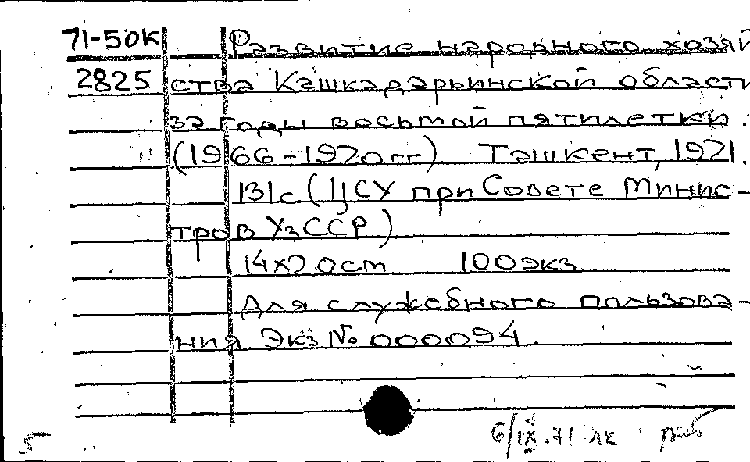 71-50к Развитие народного хозяй
2825 ства Кашкадарьинской области
за годы восьмой пятилетки.
(1966-1970гг) Ташкент, 1971.
131с (ЦСУ при Совете Минис-
тров УзССР)
14х20см 100экз
Для служебного пользова-
ния Экз № 000094.
6/IX.71 лк
5